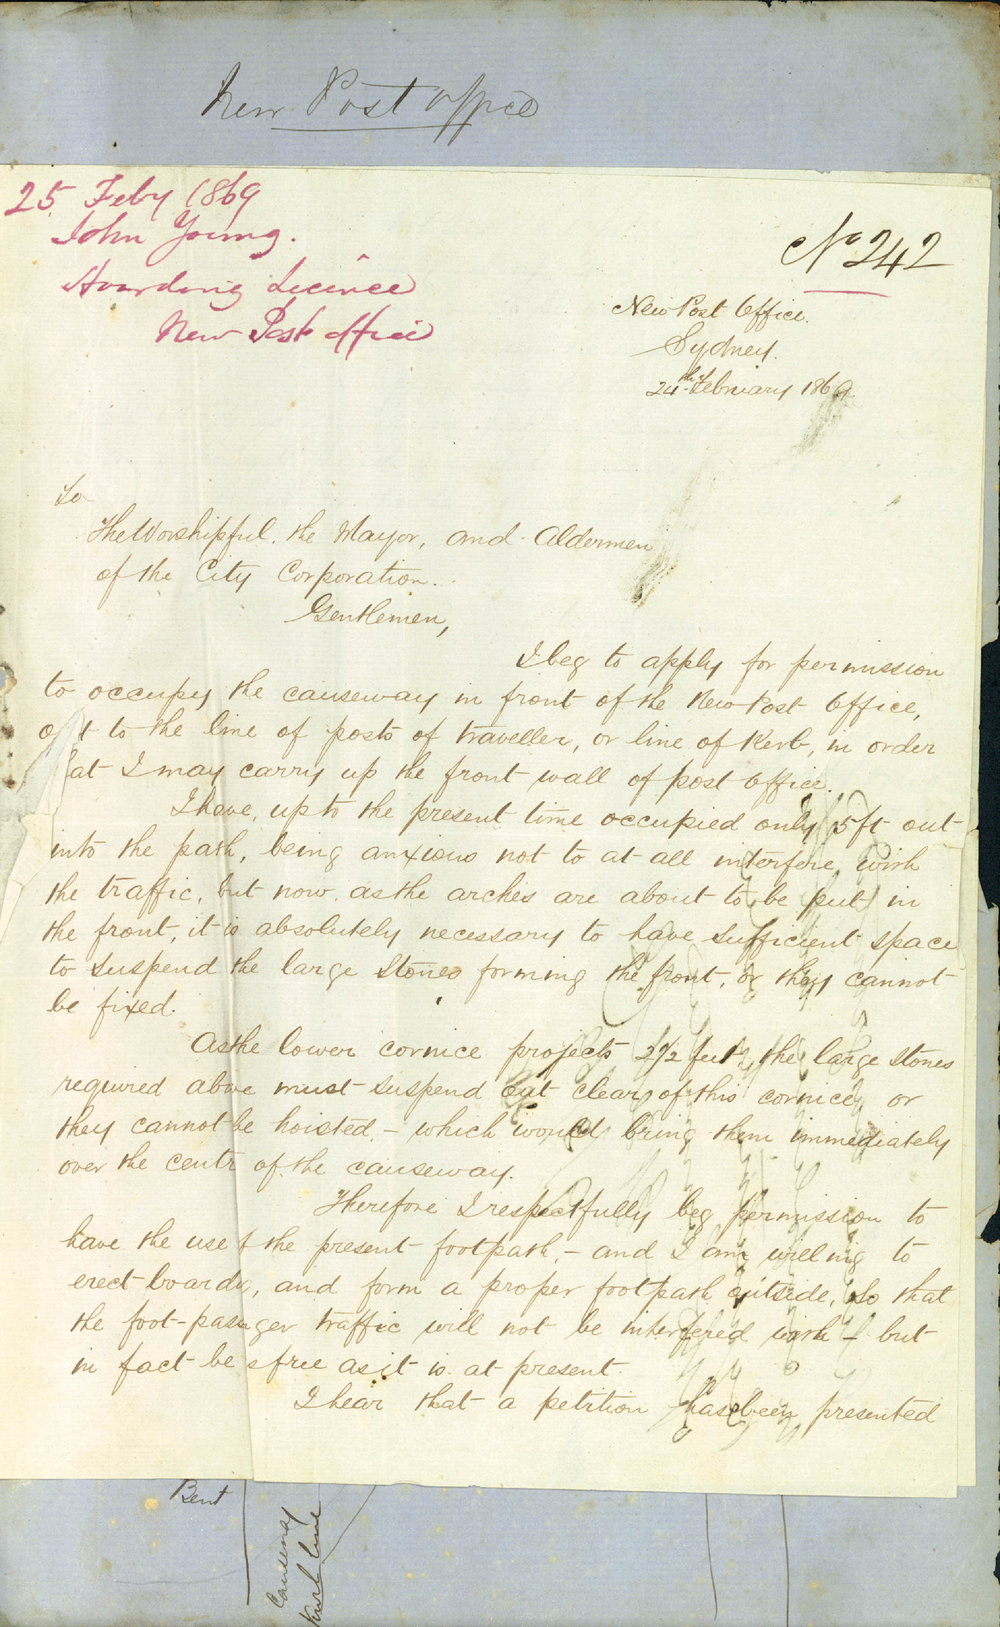 New Post Office
25 Feby 1869
John Young.
Hoarding Licence
New Post office
No 242
New Post Office.
Sydney.
24th February 1869.
To
The Worshipful, the Mayor, and Aldermen
of the City Corporation.
Gentlemen,
I beg to apply for permission
to occupy the causeway in front of the New Post Office,
out to the line of posts of traveller, or line of Kerb, in order
at I may carry up the front wall of post office.
I have, up to the present time occupied only 5 ft out
into the path, being anxious not to at all interfere with
the traffic, but now as the arches are about to be put in
the front, it is absolutely necessary to have sufficient space
to suspend the large stones forming the front, or they cannot
be fixed.
As the lower cornice projects 2 1/2 feet, the large stones
required above must suspend out clear of this cornice, or
they cannot be hoisted, – which would bring them immediately
over the centr of the causeway.
Therefore I respectfully beg permission to
have the use f the present footpath, – and I am willing to
erect boards, and form a proper footpath outside, so that
the foot-passenger traffic will not be interfered with – but
in fact be s free as it is at present.
I hear that a petition has been presented
Bent
Causeway
Kerb line